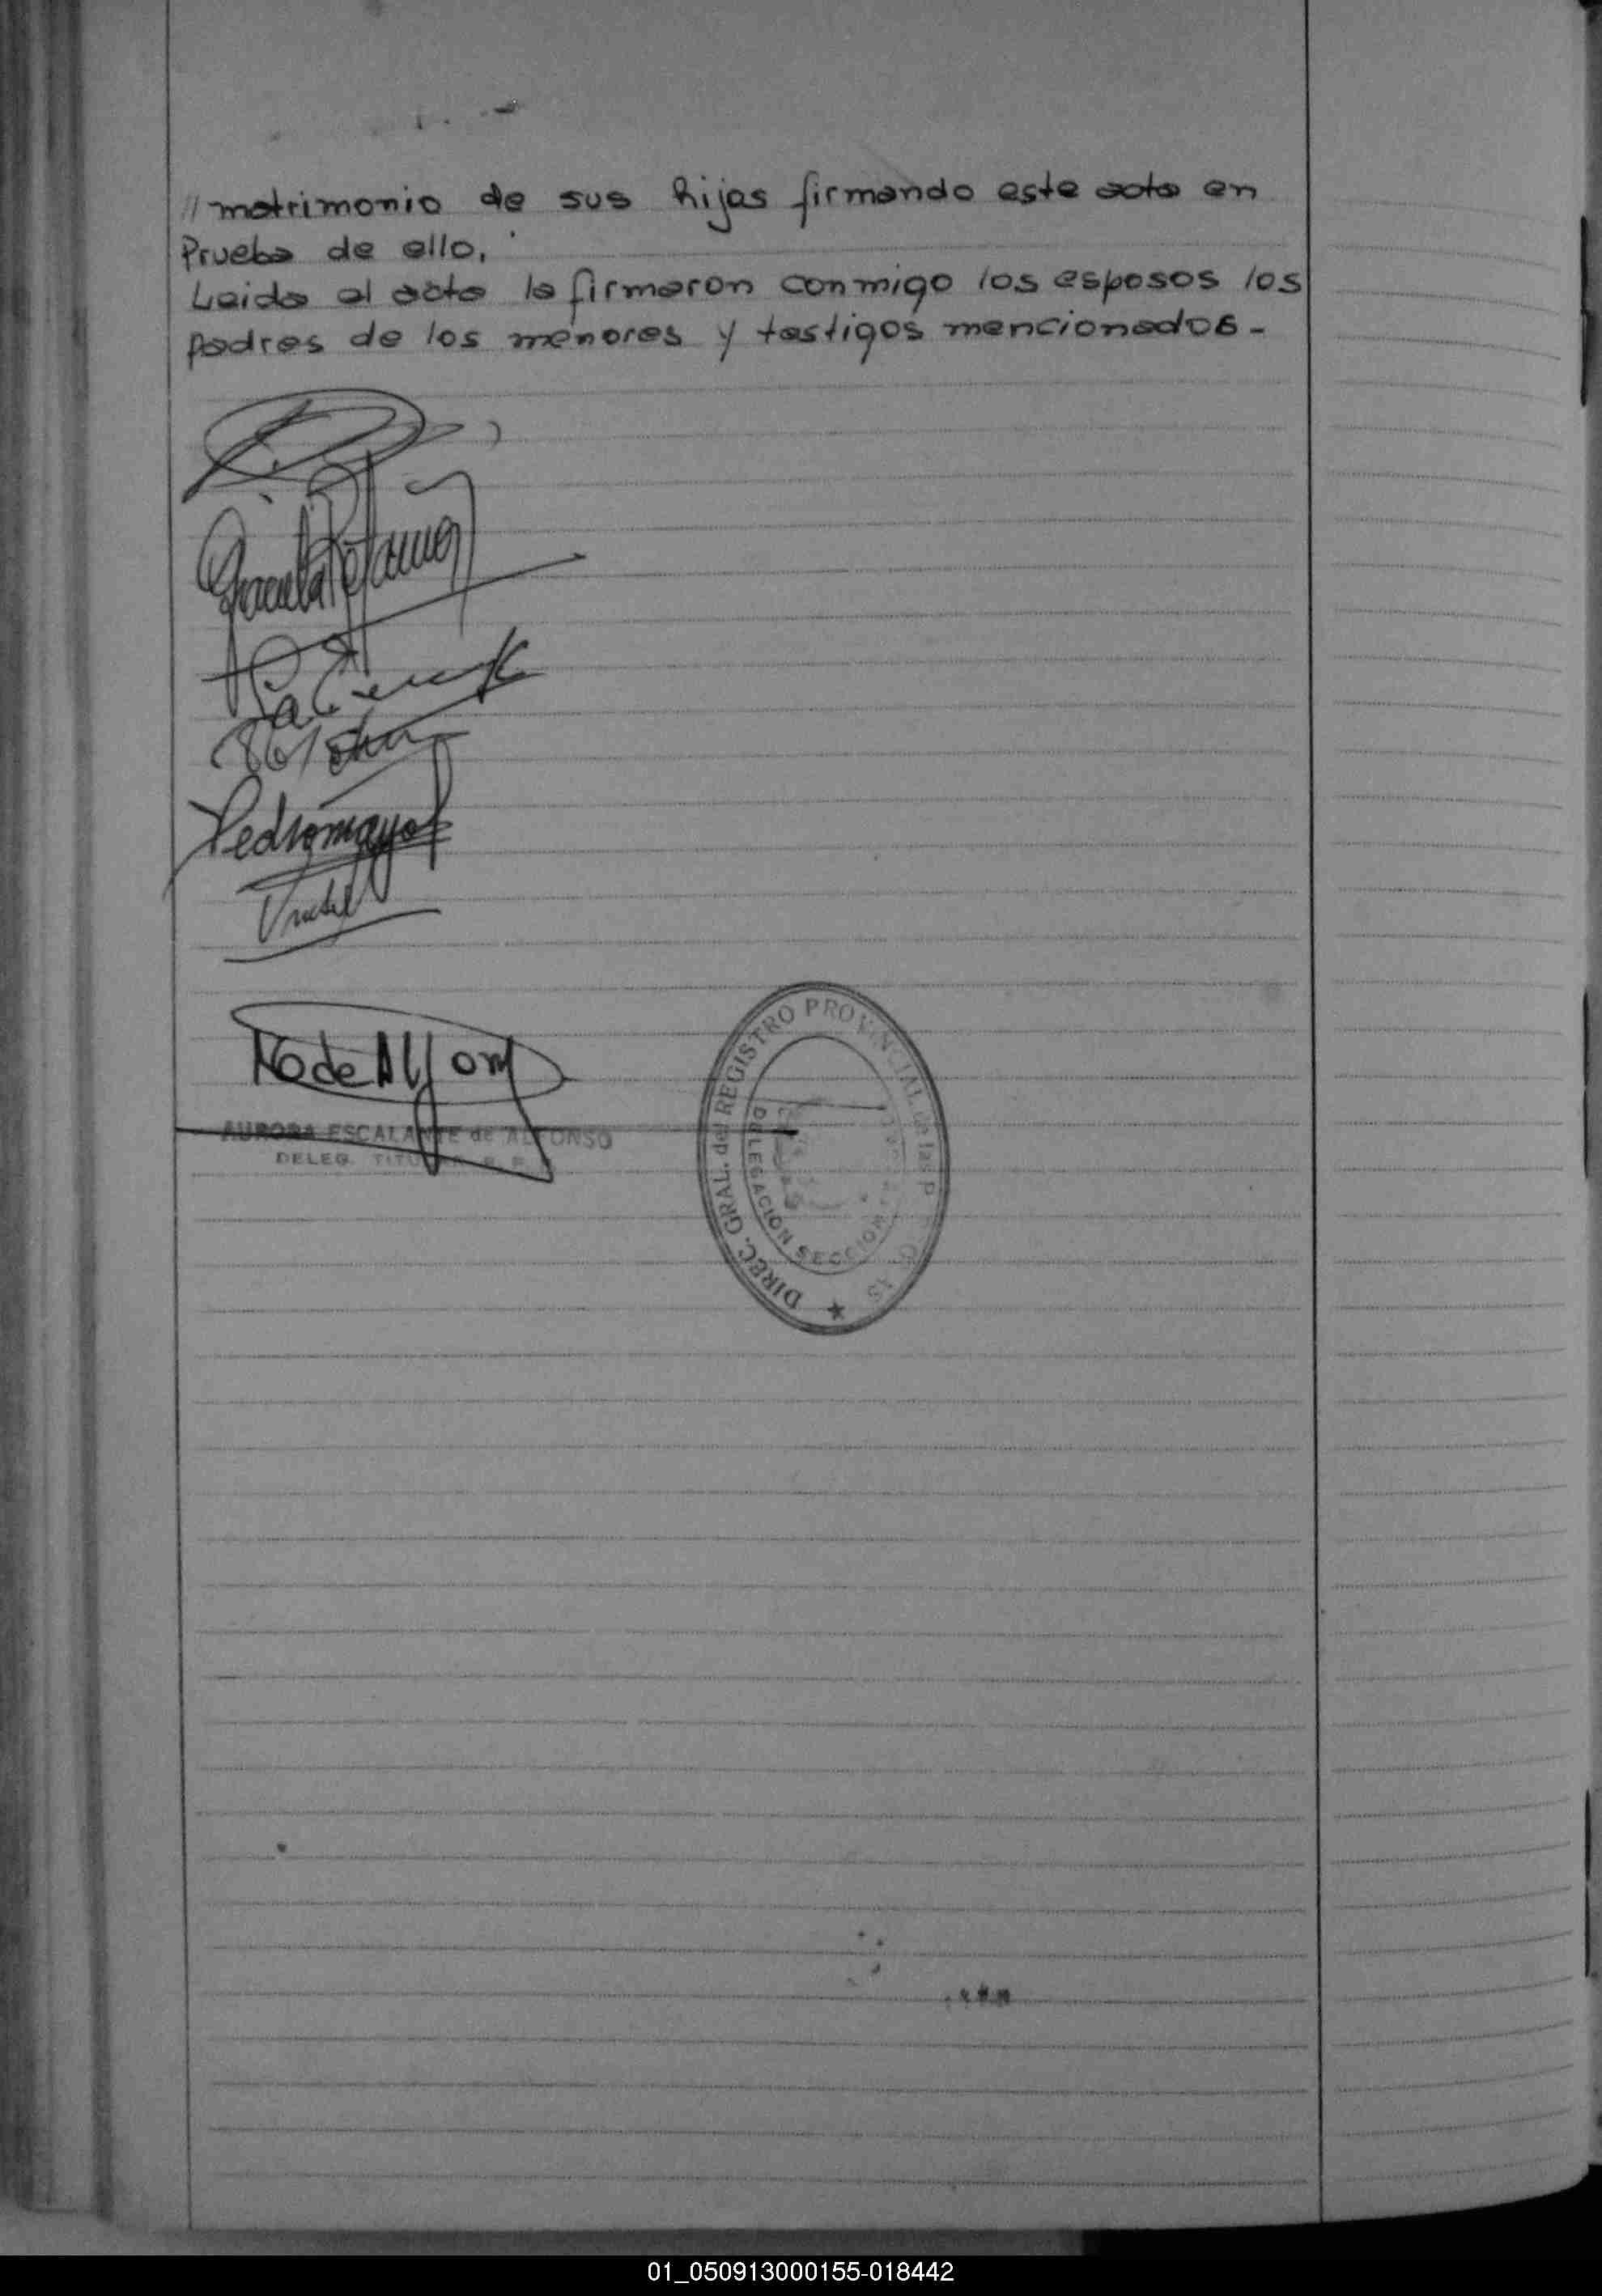 // matrimonio de sus hijos firmando este acta en
Prueba de ello.
Leida el acta la firmaron conmigo los esposos los
padres de los menores y testigos mencionados -
Pedro mayol
AURORA ESCALANTE de ALFONSO
DELEG. TITULAR
DIREC. GRAL. del REGISTRO PROVINCIAL de las P
DELEGACION SECCION
01_050913000155-018442